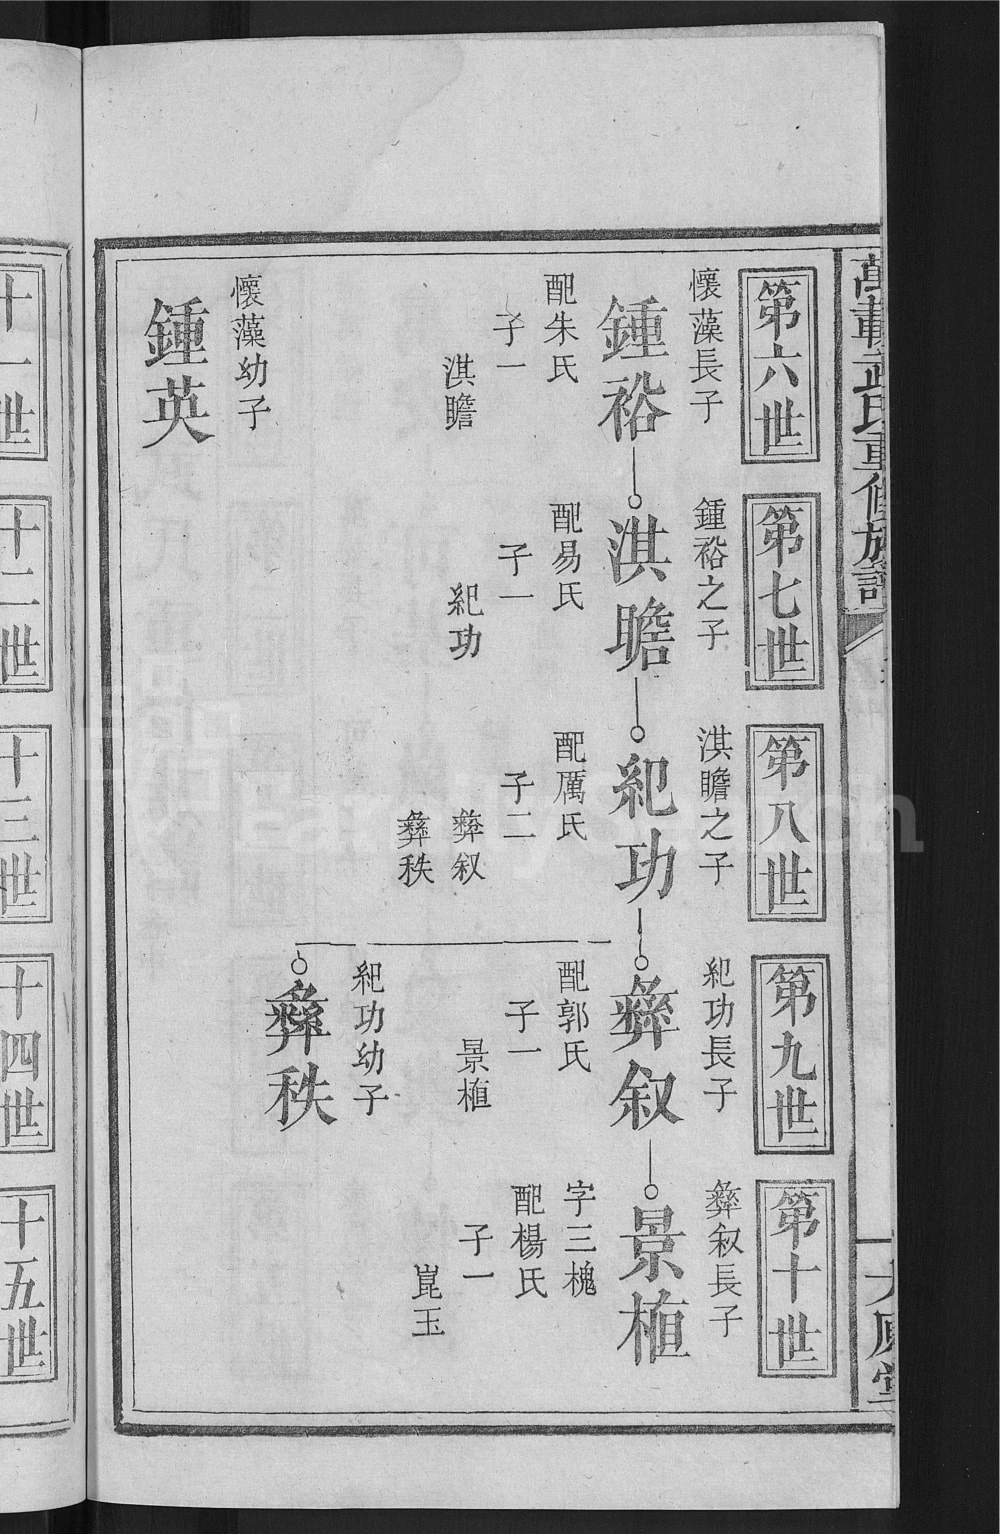 萬載武氏重修族譜
第六世
第七世
第八世
第九世
第十世
懷藻長子
鍾裕
配朱氏
子一
淇瞻
鍾裕之子
淇瞻
配易氏
子一
紀功
淇瞻之子
紀功
配厲氏
子二
彝叙
彝秩
紀功長子
彝叙
配郭氏
子一
景植
彝叙長子
景植
字三槐
配楊氏
子一
崑玉
紀功幼子
彝秩
懷藻幼子
鍾英
十一世
十二世
十三世
十四世
十五世